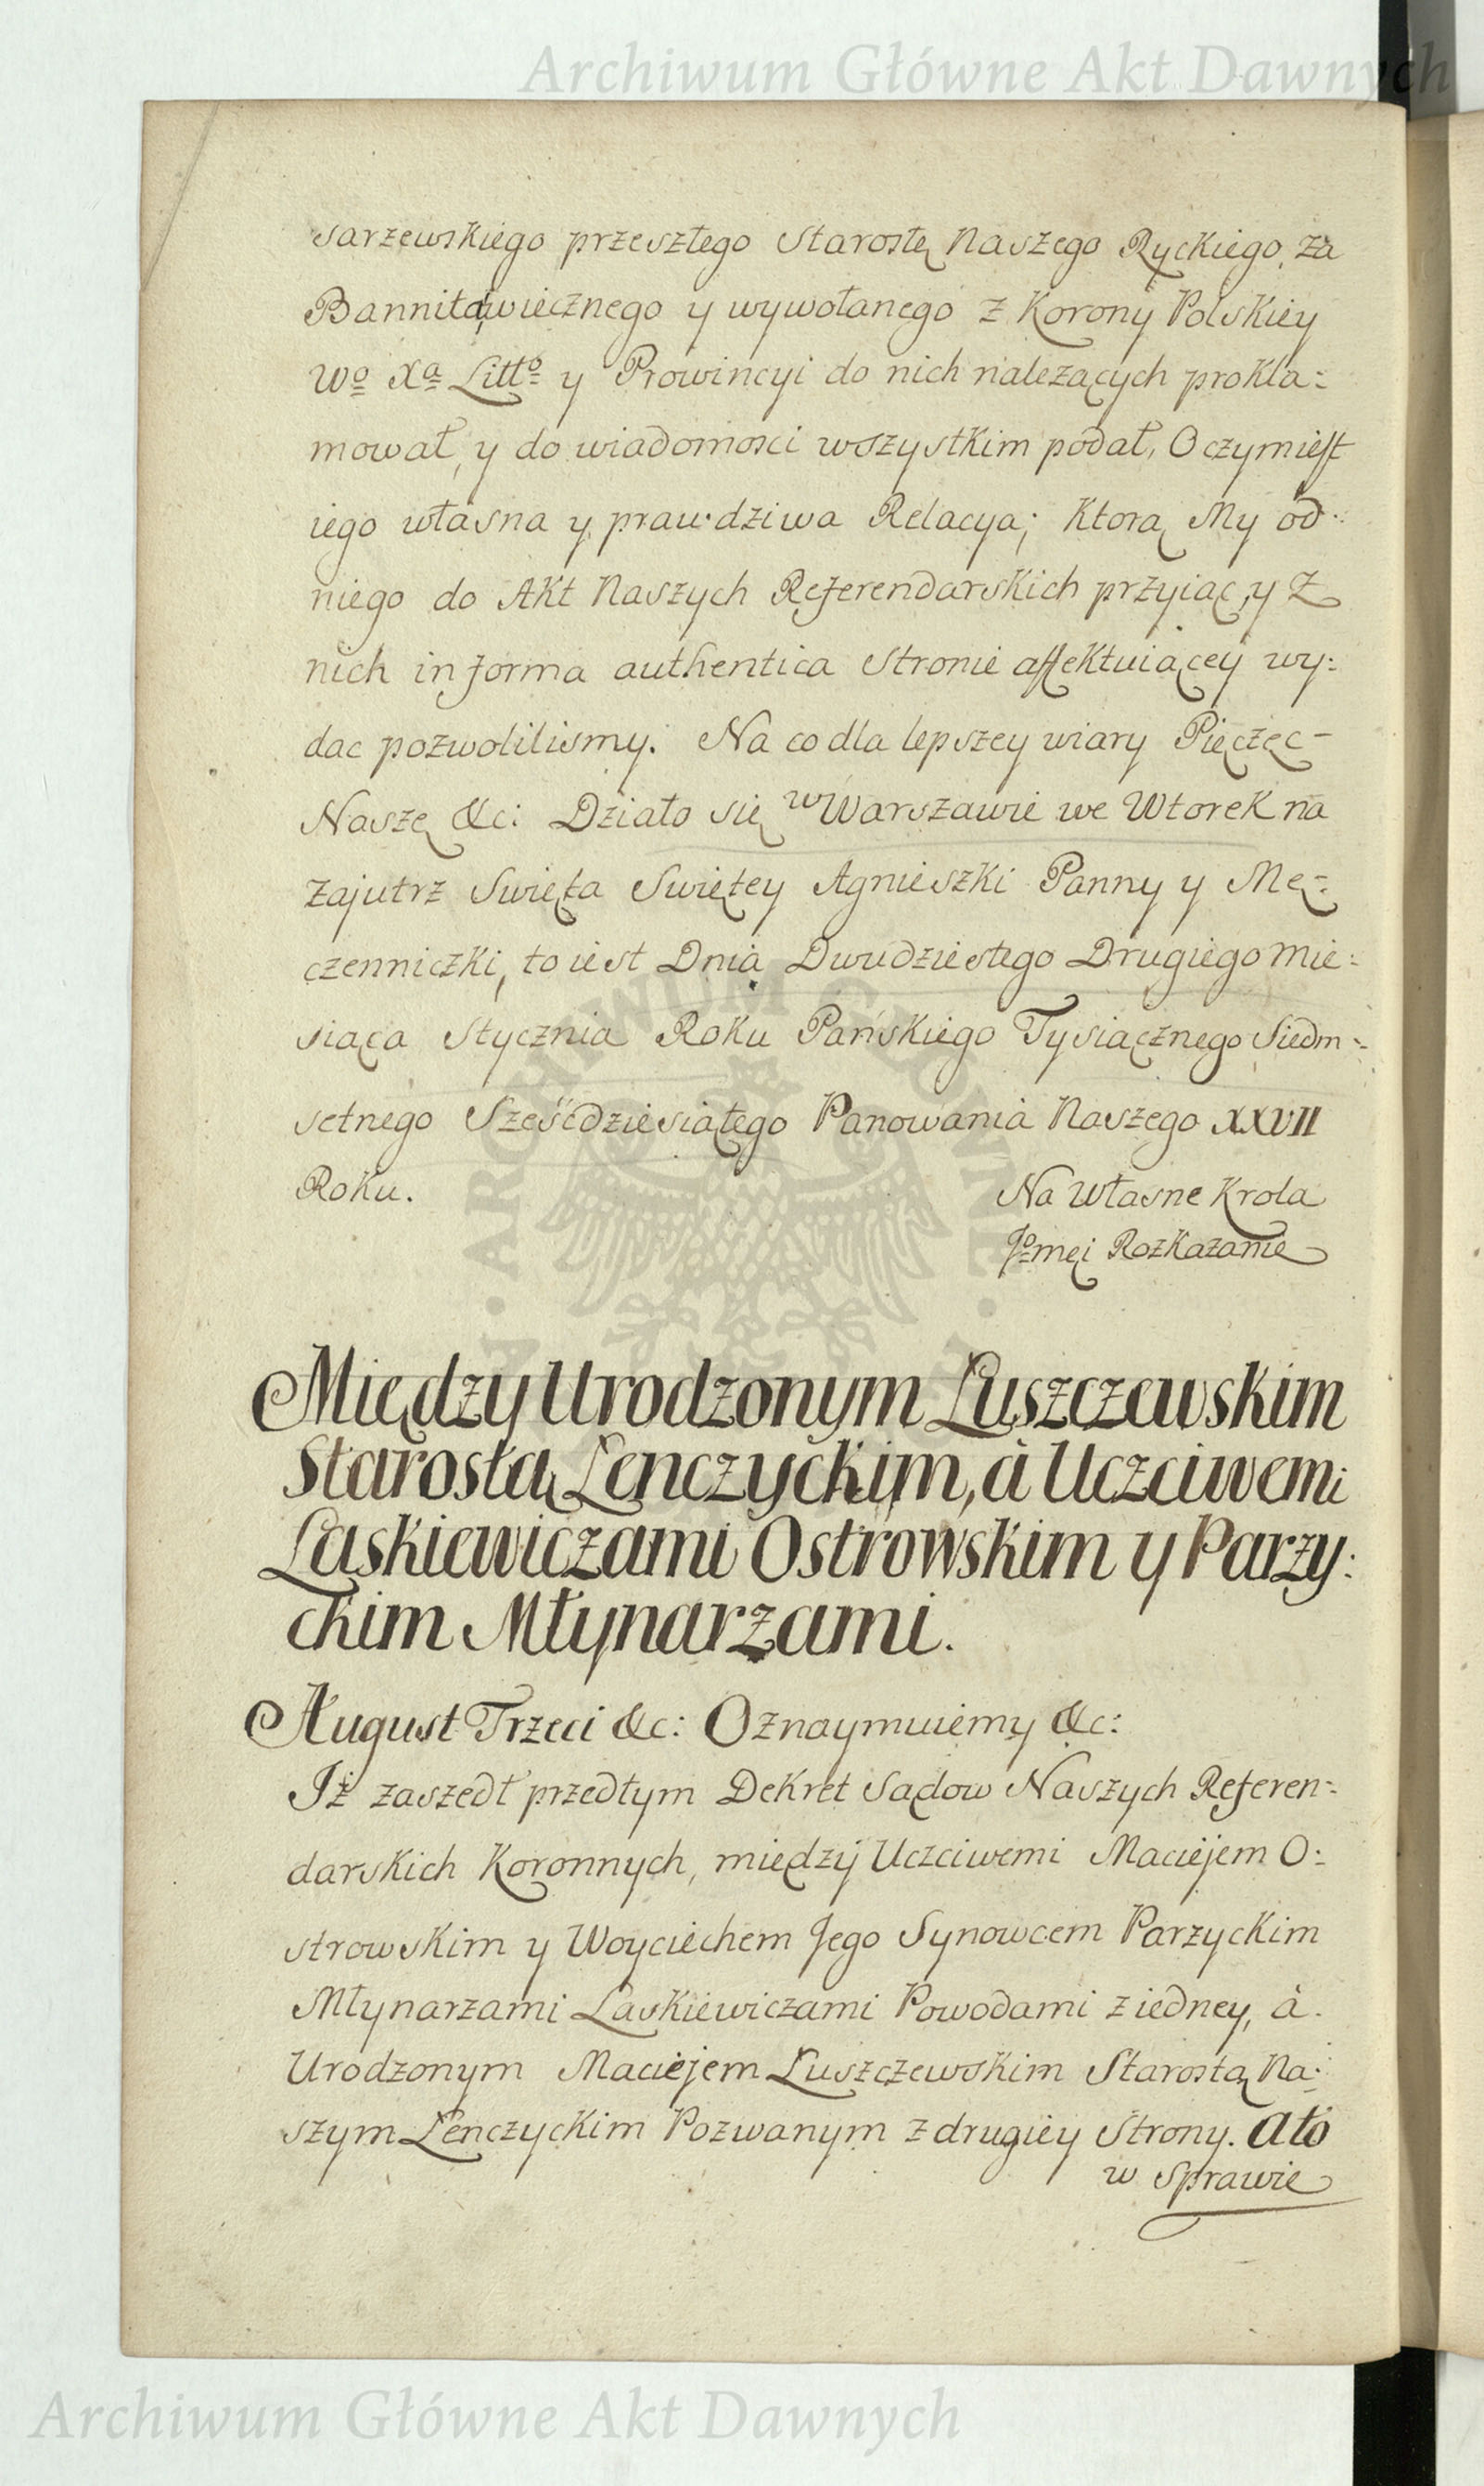 Archiwum Główne Akt Dawnych
sarzewskiego przeszłego Starostę Naszego Ryckiego, za
Bannitą wiecznego y wywołanego z Korony Polskiey
Wo Xa Litto y Prowincyi do nich należących prokla=
mował, y do wiadomosci wszystkim podał, O czym iest
iego własna y prawdziwa Relacya; Ktorą My od
niego do Akt Naszych Referendarskich przyiąc, y z
nich in forma authentica Stronie affektuiącey wy=
dac pozwolilismy. Na co dla lepszey wiary Pięczęc
Naszę &c: Działo się w Warszawie we Wtorek na
zajutrz Swięta Swiętey Agnieszki Panny y Mę=
czenniczki, to iest Dnia Dwudziestego Drugiego Mie=
siąca Stycznia Roku Pańskiego Tysiącznego Siedm=
setnego Sześćdziesiątego Panowania Naszego XXVII
Roku.
Na Własne Krola
Jomęi Rozkazanie
Między Urodzonym Luszczewskim
Starostą Lenczyckim, à Uczciwemi
Laskiewiczami Ostrowskim y Parzy=
ckim Młynarzami.
August Trzeci &c: Oznaymuiemy &c:
Iż zaszedł przedtym Dekret Sądow Naszych Referen=
darskich Koronnych, między Uczciwemi Maciejem O=
strowskim y Woyciechem Jego Synowcem Parzyckim
Młynarzami Laskiewiczami Powodami z iedney, à
Urodzonym Maciejem Luszczewskim Starostą Na=
szym Lenczyckim Pozwanym z drugiey Strony. Ato
w Sprawie
Archiwum Główne Akt Dawnych